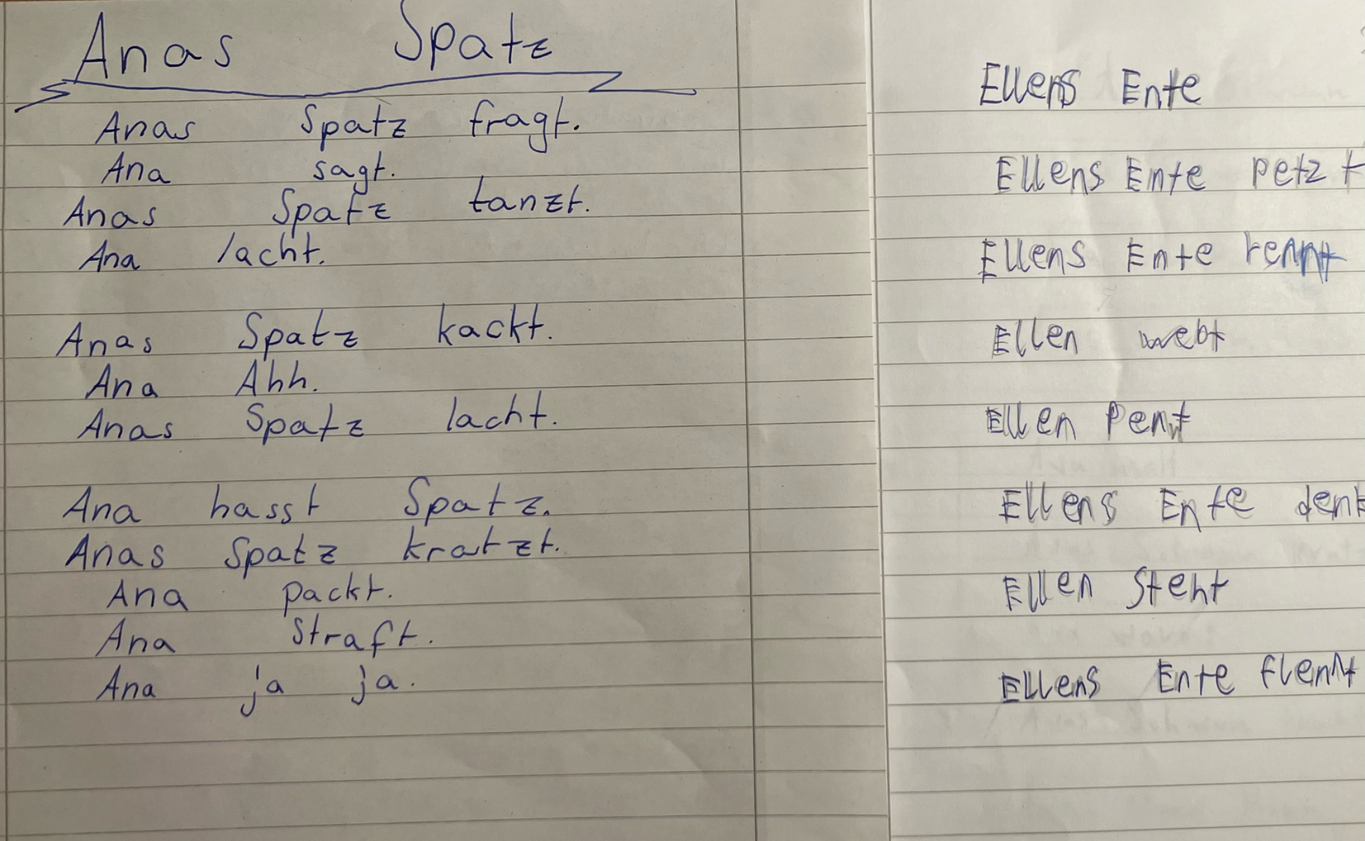 Anas Spatz
Anas Spatz fragt.
Ana sagt.
Anas Spatz tanzt.
Ana lacht.
Anas Spatz kackt.
Ana Ahh.
Anas Spatz lacht.
Ana hasst Spatz.
Anas Spatz kratzt.
Ana packt.
Ana straft.
Ana ja ja.
Ellens Ente
Ellens Ente petzt
Ellens Ente rennt
Ellen webt
Ellen Pent
Ellens Ente denk
Ellen Steht
Ellens Ente flennt